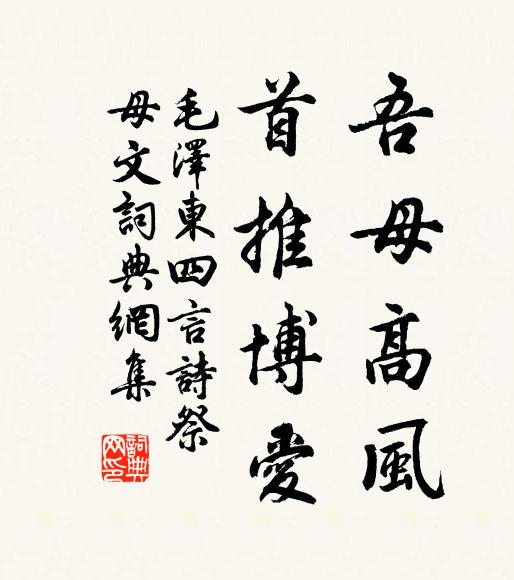 吾母高風
首推博愛
毛澤東四言詩祭
母文詞典網集
詞典網印